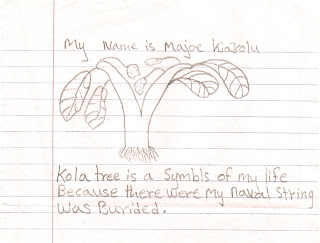 My Name is Majoe Kiazolu
Kola tree is a Symbls of my life
Because there were my naval String
was Burided.